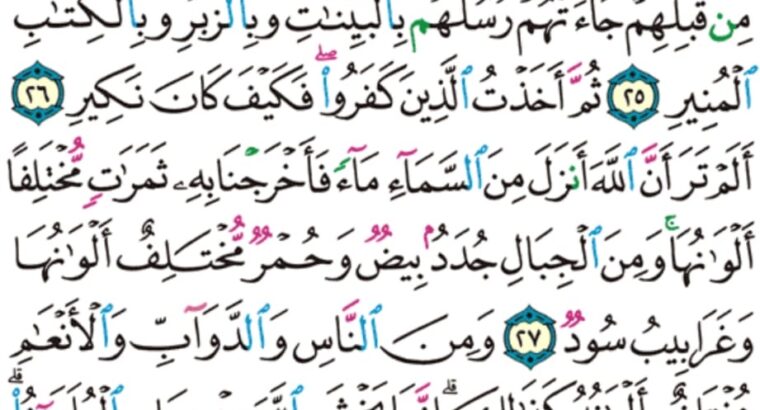 مِن قَبْلِهِمْ جَآءَتْهُمْ رُسُلُهُم بِٱلْبَيِّنَٰتِ وَبِٱلزُّبُرِ وَبِٱلْكِتَٰبِ
ٱلْمُنِيرِ ٢٥ ثُمَّ أَخَذْتُ ٱلَّذِينَ كَفَرُوا۟ ۖ فَكَيْفَ كَانَ نَكِيرِ ٢٦
أَلَمْ تَرَ أَنَّ ٱللَّهَ أَنزَلَ مِنَ ٱلسَّمَآءِ مَآءً فَأَخْرَجْنَا بِهِۦ ثَمَرَٰتٍ مُّخْتَلِفًا
أَلْوَٰنُهَا ۚ وَمِنَ ٱلْجِبَالِ جُدَدٌۢ بِيضٌ وَحُمْرٌ مُّخْتَلِفٌ أَلْوَٰنُهَا
وَغَرَابِيبُ سُودٌ ٢٧ وَمِنَ ٱلنَّاسِ وَٱلدَّوَآبِّ وَٱلْأَنْعَٰمِ